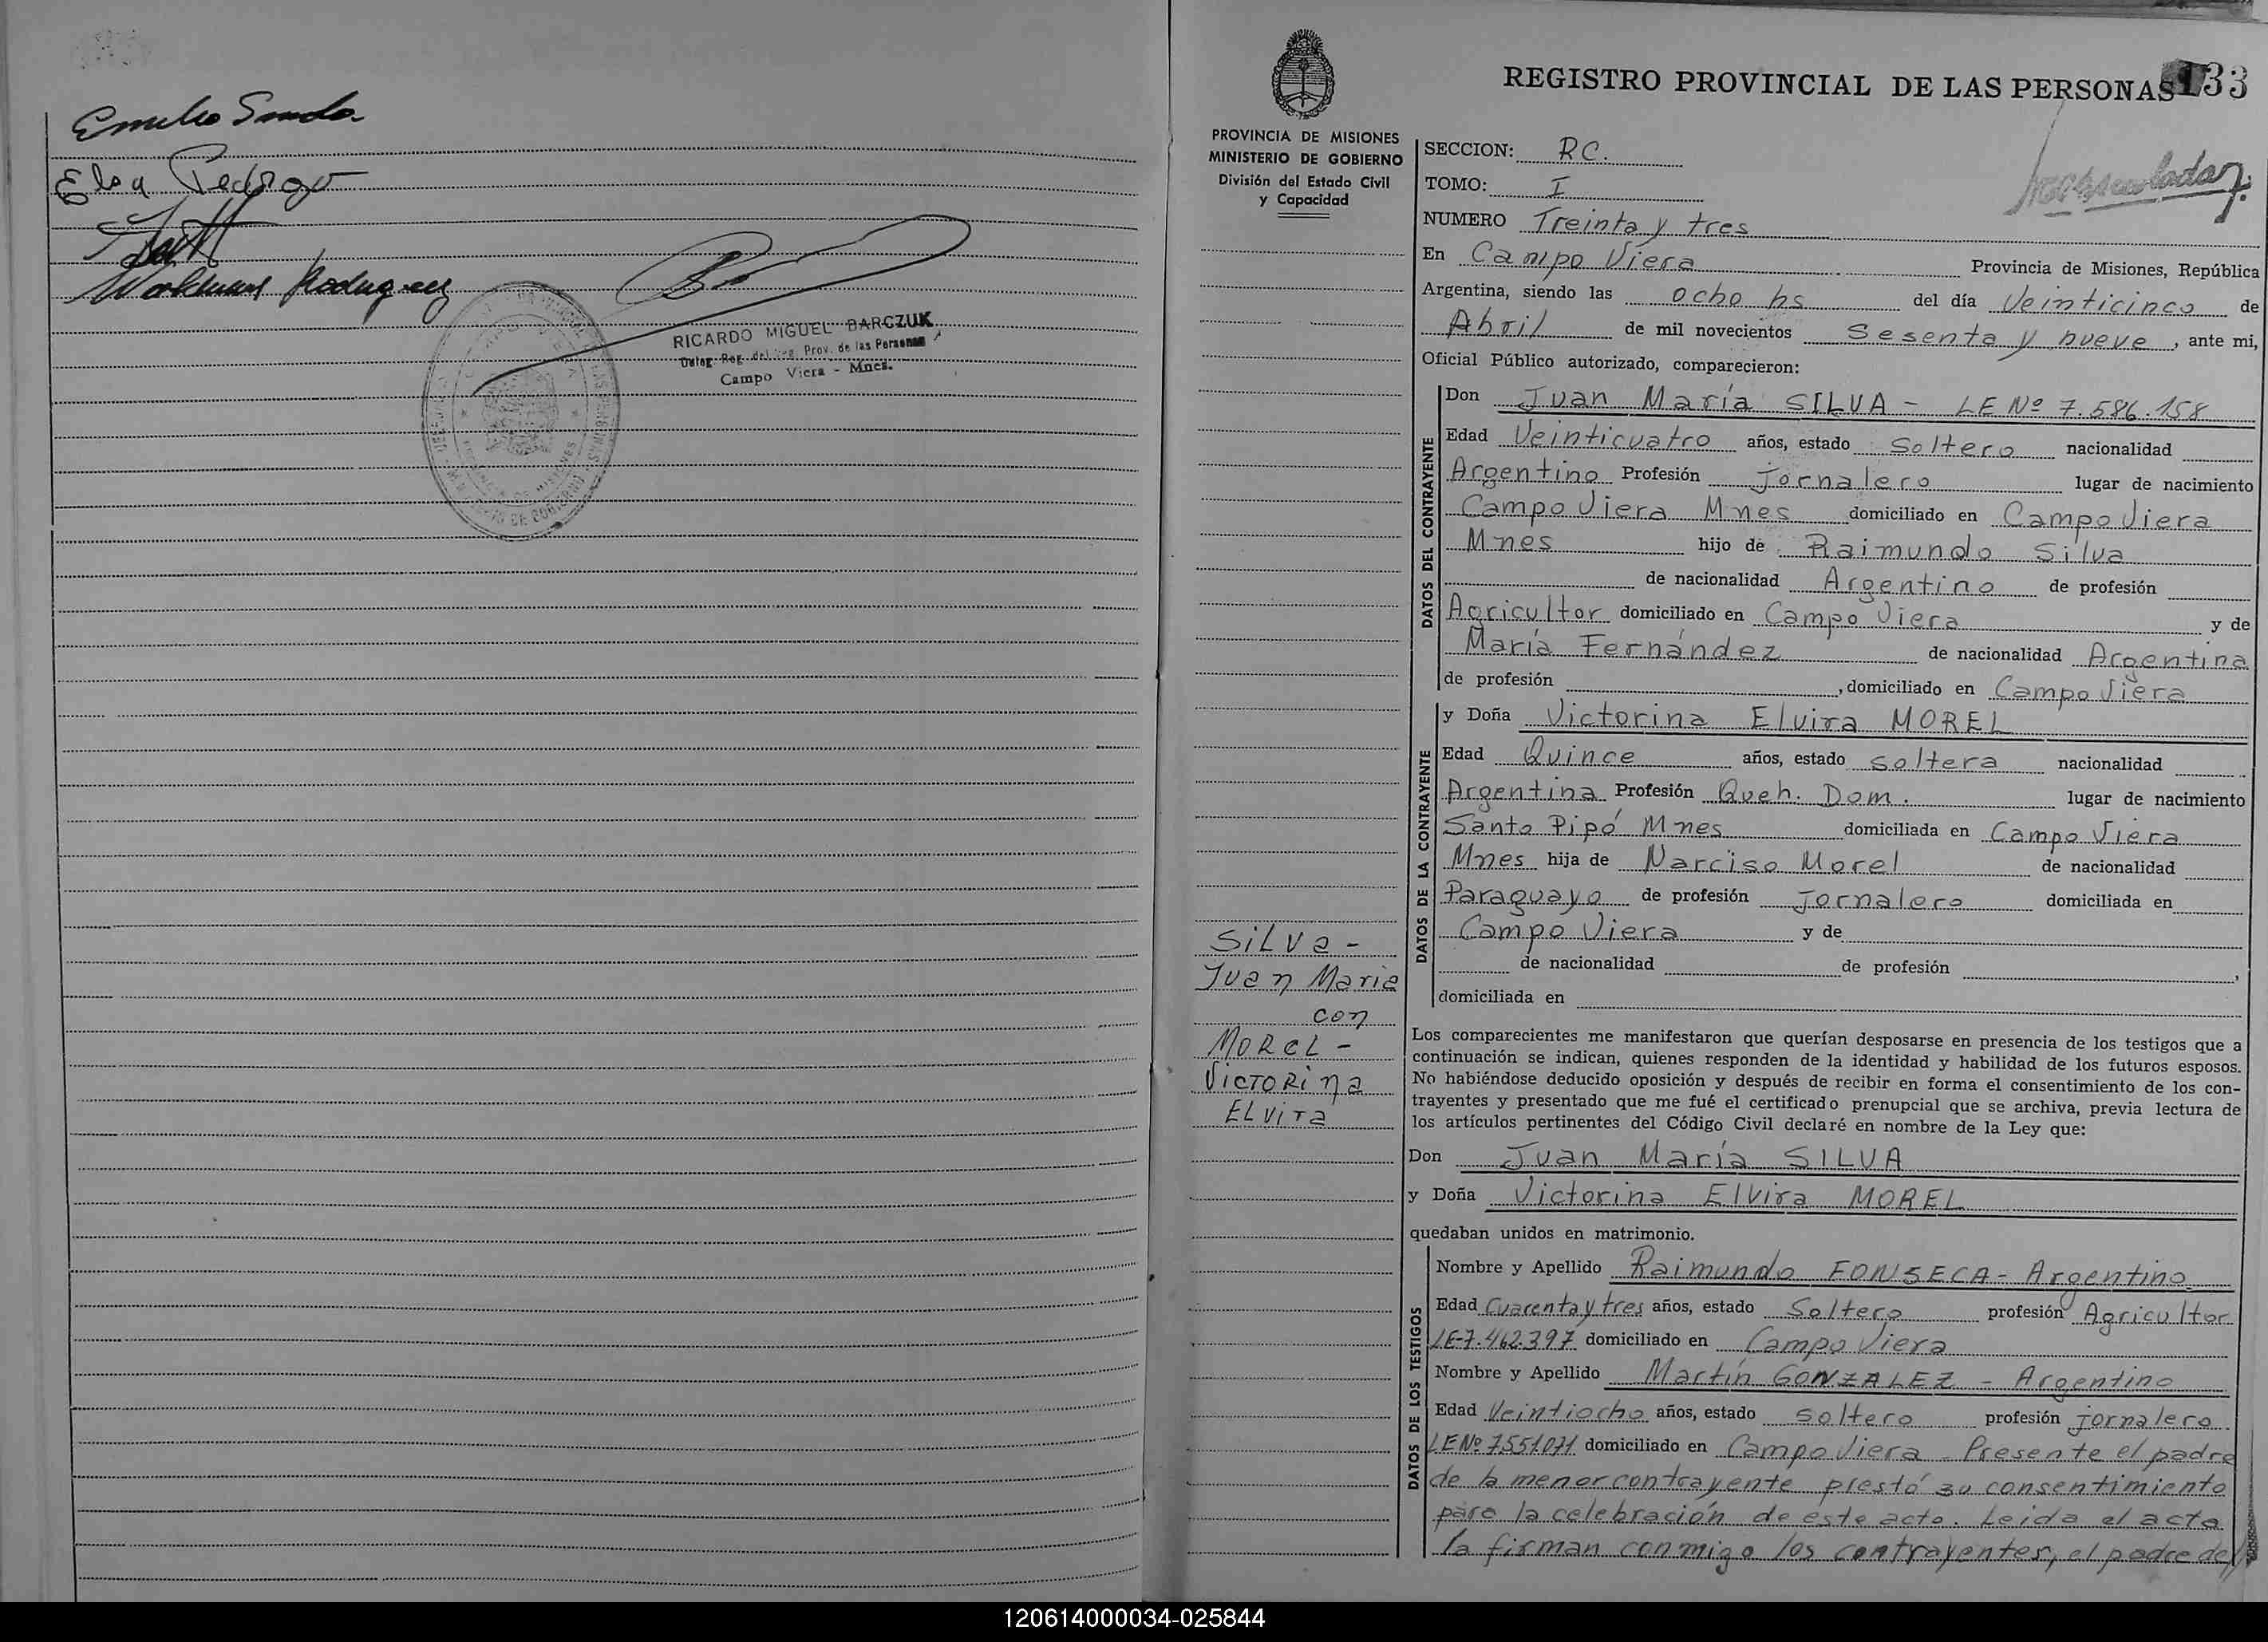 Elsa Pedrozo
Rodriguez
RICARDO MIGUEL BARCZUK
Deleg. Reg. del Prov. de las Personas
Campo Viera - Mnes.
133
REGISTRO PROVINCIAL DE LAS PERSONAS
PROVINCIA DE MISIONES
MINISTERIO DE GOBIERNO
División del Estado Civil
y Capacidad
SILVA -
Juan Maria
con
MOREL -
VICTORINA
ELVIRA
SECCION: RC.
TOMO: I
NUMERO Treinta y tres
En Campo Viera Provincia de Misiones, República
Argentina, siendo las ocho hs del día Veinticinco de
Abril de mil novecientos Sesenta y nueve, ante mi,
Oficial Público autorizado, comparecieron:
DATOS DEL CONTRAYENTE
Don Juan María SILVA - LE Nº 7.586.158
Edad Veinticuatro años, estado Soltero nacionalidad
Argentino Profesión jornalero lugar de nacimiento
Campo Viera Mnes domiciliado en Campo Viera
Mnes hijo de Raimundo Silva
de nacionalidad Argentino de profesión
Agricultor domiciliado en Campo Viera y de
María Fernández de nacionalidad Argentina
de profesión , domiciliado en Campo Viera
DATOS DE LA CONTRAYENTE
y Doña Victorina Elvira MOREL
Edad Quince años, estado soltera nacionalidad
Argentina Profesión Queh. Dom. lugar de nacimiento
Santo Pipó Mnes domiciliada en Campo Viera
Mnes hija de Narciso Morel de nacionalidad
Paraguayo de profesión Jornalero domiciliada en
Campo Viera y de
de nacionalidad de profesión ,
domiciliada en
Los comparecientes me manifestaron que querían desposarse en presencia de los testigos que a
continuación se indican, quienes responden de la identidad y habilidad de los futuros esposos.
No habiéndose deducido oposición y después de recibir en forma el consentimiento de los con-
trayentes y presentado que me fué el certificado prenupcial que se archiva, previa lectura de
los artículos pertinentes del Código Civil declaré en nombre de la Ley que:
Don Juan María SILVA
y Doña Victorina Elvira MOREL
quedaban unidos en matrimonio.
DATOS DE LOS TESTIGOS
Nombre y Apellido Raimundo FONSECA - Argentino
Edad Cuarenta y tres años, estado Soltero profesión Agricultor
LE-7.462.397 domiciliado en Campo Viera
Nombre y Apellido Martín GONZALEZ - Argentino
Edad Veintiocho años, estado soltero profesión jornalero
LE Nº 7551071 domiciliado en Campo Viera. Presente el padre
de la menor contrayente prestó su consentimiento
para la celebración de este acto. Leida el acta
la firman conmigo los contrayentes, el padre de
120614000034-025844